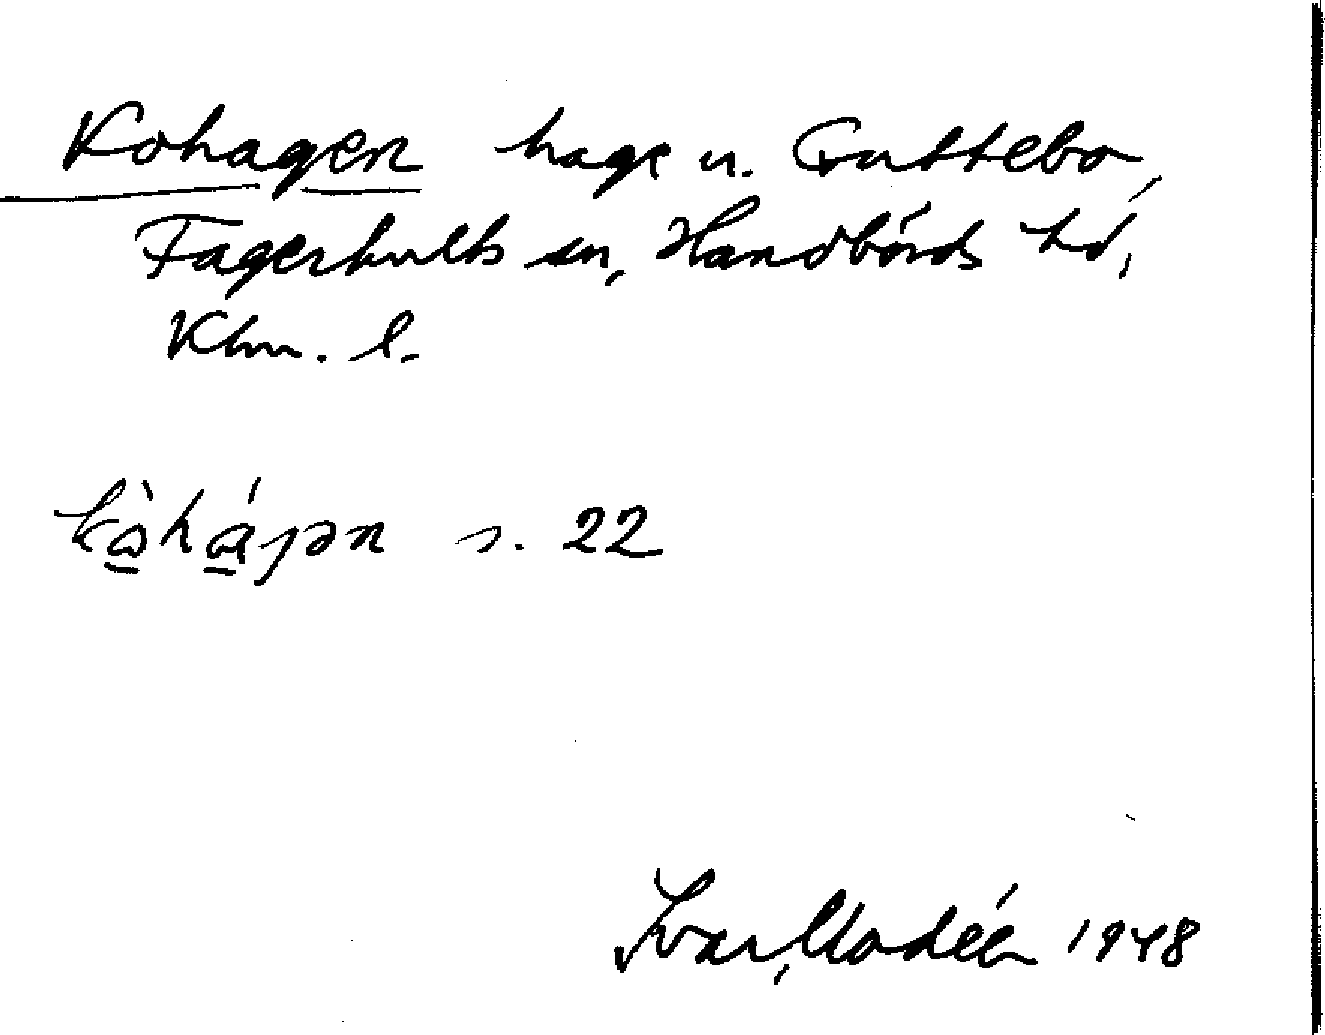 Kohagen hage u. Guttebo,
Fagerhults sn, Handbörds hd,
Klm. l.
s. 22
Ivar Modéer 1948